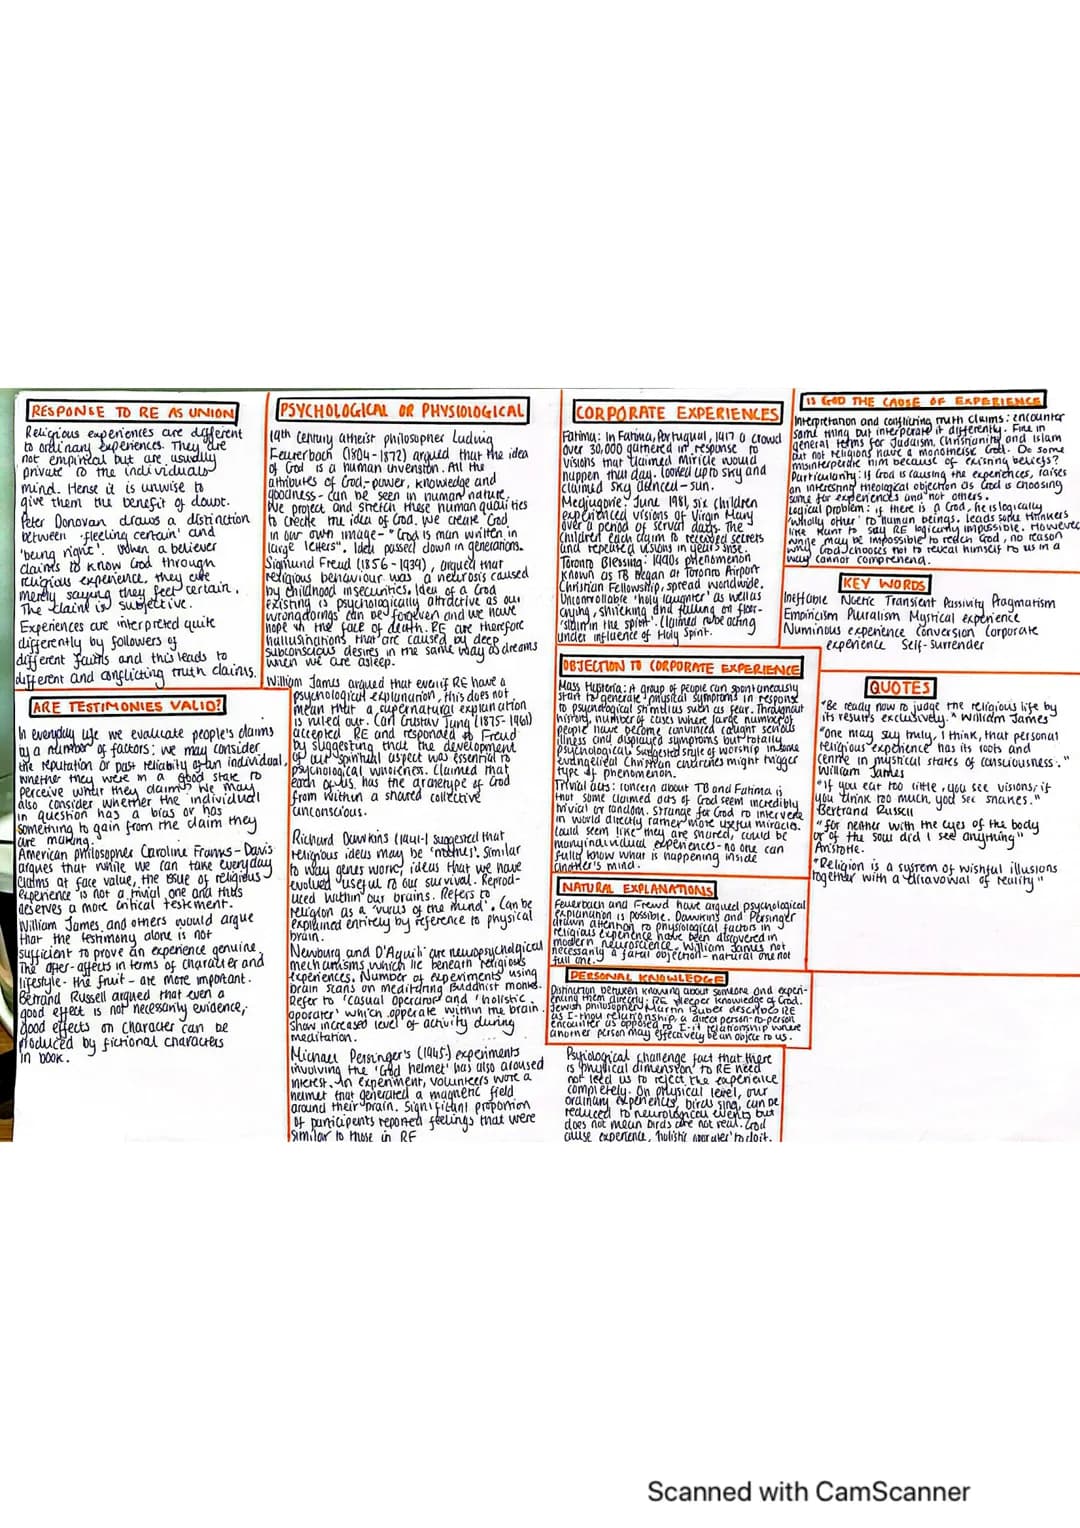 RESPONSE TO RE AS UNION
Religious experiences are different
to ordinary experiences. They are
not empirical but are usually
private to the individuals
mind. Hence it is unwise to
give them the benefit of doubt.
Peter Donovan draws a distinction
between 'feeling certain' and
'being right'. When a believer
claims to know God through
religious experience, they are
merely saying they feel certain.
The claim is subjective.
Experiences are interpreted quite
differently by followers of
different faiths and this leads to
different and conflicting truth claims.
ARE TESTIMONIES VALID?
In everyday life we evaluate people's claims
by a number of factors: we may consider
the reputation or past reliability of an individual,
whether they were in a good state to
perceive what they claim. We may
also consider whether the individual
in question has a bias or has
something to gain from the claim they
are making.
American philosopher Caroline Franks-Davis
argues that while we can take everyday
claims at face value, the issue of religious
experience is not a trivial one and thus
deserves a more critical testement.
William James and others would argue
that the testimony alone is not
sufficient to prove an experience genuine.
The after-affects in terms of character and
lifestyle - the fruit - are more important.
Bertrand Russell argued that even a
good effect is not necessarily evidence,
good effects on character can be
produced by fictional characters
in book.
PSYCHOLOGICAL OR PHYSIOLOGICAL
19th century atheist philosopher Ludwig
Feuerbach (1804-1872) argued that the idea
of God is a human invension. All the
atributes of God - power, knowledge and
goodness - can be seen in human nature.
We project and stretch these human qualities
to create the idea of God. We create 'God
in our own image - "God is man written in
large letters". Idea passed down in generations.
Sigmund Freud (1856-1939), argued that
religious behaviour was a neurosis caused
by childhood insecurities. Idea of a God
existing is psychologically attractive as our
wrongdoings can be forgiven and we have
hope in the face of death. RE are therefore
hallusinations that are caused by deep
subconscious desires in the same way as dreams
when we are asleep.
William James argued that even if RE have a
psychological explanation, this does not
mean that a supernatural explanation
is ruled out. Carl Gustav Jung (1875-1961)
accepted RE and responded to Freud
by suggesting that the development
of our spiritual aspect was essential to
psychological wholeness. Claimed that
each of us has the archetype of God
from within a shared collective
unconscious.
Richard Dawkins (1941-) suggested that
religious ideas may be 'memes'. Similar
to way genes work, ideas that we have
evolved useful to our survival. Reprod-
uced within our brains. Refers to
religion as a 'virus of the mind'. Can be
explained entirely by reference to physical
brain.
Newburg and D'Aquili are neuropsychological
mechanisms which lie beneath religious
experiences. Number of experiments using
brain scans on meditating Buddhist monks.
Refer to 'casual operator' and 'holistic
oporater' which opperate within the brain.
Show increased level of activity during
meditation.
Michael Persinger's (1945-) experiments
involving the 'God helmet' has also aroused
interest. In experiment, volunteers wore a
helmet that generated a magnetic field
around their brain. Significant proportion
of participants reported feelings that were
similar to those in RE
CORPORATE EXPERIENCES
Fatima: In Fatima, Portugual, 1917 a crowd
over 30,000 gathered in response to
visions that claimed miricle would
happen that day. Looked up to sky and
claimed sky danced - sun.
Medjugorie: June 1981, six children
experienced visions of Virgin Mary
over a period of days. The
children each claim to recieved secrets
and repeated visions in years sinse.
Toronto Blessing: 1990s phenomenon
known as TB began at Toronto Airport
Christian Fellowship, spread worldwide.
Uncontrollable 'holy laughter' as well as
crying, shricking and falling on floor -
'slain in the spirit'. Claimed to be acting
under influence of Holy Spirit.
OBJECTION TO CORPORATE EXPERIENCE
Mass Hysteria: A group of people can spontaneously
start to generate physical symptoms in response
to psychological stimulus such as fear. Throughout
history, number of cases where large number of
people have become convinced caught serious
illness and displayed symptoms but totally
psychological. Suggested style of worship in some
evangelical Christian churches might trigger
type of phenomenon.
Trivial acts: concern about TB and Fatima is
that some claimed acts of God seem incredibly
trivial or random. Strange for God to intervene
in world directly rather more useful miracle.
Could seem like they are shared, could be
many individual experiences - no one can
fully know what is happening inside
another's mind.
NATURAL EXPLANATIONS
Feuerbach and Freud have argued psycological
explanation is possible. Dawkins and Persinger
drawn attention to physiological factors in
religious experience have been discovered in
modern neuroscience. William James not
necessarily a fatal objection - natural one not
full one.
PERSONAL KNOWLEDGE
Distinction between knowing about someone and experi-
encing them directly. RE deeper knowledge of God.
Jewish philosopher Martin Buber describes RE
as I-thou relationship, a direct person-to-person
encounter as opposed to I-it relationship where
another person may effectively be an object to us.
challenge fact that there
is physical dimension to RE need
not lead us to reject the experience
completely. On physical level, our
ordinary experiences, birds sing, can be
reduced to neurological events but
does not mean birds are not real. God
cause experience, 'holistic oporater' to do it.
IS GOD THE CAUSE OF EXPERIENCE
Interpretation and conflicting truth claims: encounter
same thing but interperate it differently. Fine in
general terms for Judaism, Christianity and Islam
but not religions have a monotheisic God. Do some
misinterperate him because of existing beliefs?
Particularity: if God is causing the experiences, raises
an interesting theological objection as God is choosing
some for experiences and not others.
Logical problem: if there is a God, he is logically
'wholly other' to human beings. Leads some thinkers
like Kant to say RE logically impossible. However
while may be impossible to reach God, no reason
why God chooses not to reveal himself to us in a
way cannot comprehend.
KEY WORDS
Ineffable Noetic Transient Passivity Pragmatism
Empiricism Pluralism Mystical experience
Numinous experience Conversion Corporate
experience Self-surrender
QUOTES
"Be ready now to judge the religious life by
its results exclusively." William James
"One may say truly, I think, that personal
religious experience has its roots and
centre in mystical states of consciousness."
William James
"If you eat too little, you see visions; if
you drink too much, you see snakes."
Bertrand Russell
"For neither with the eyes of the body
or of the soul did I see anything"
Aristotle.
"Religion is a system of wishful illusions
together with a disavowal of reality"
Scanned with CamScanner